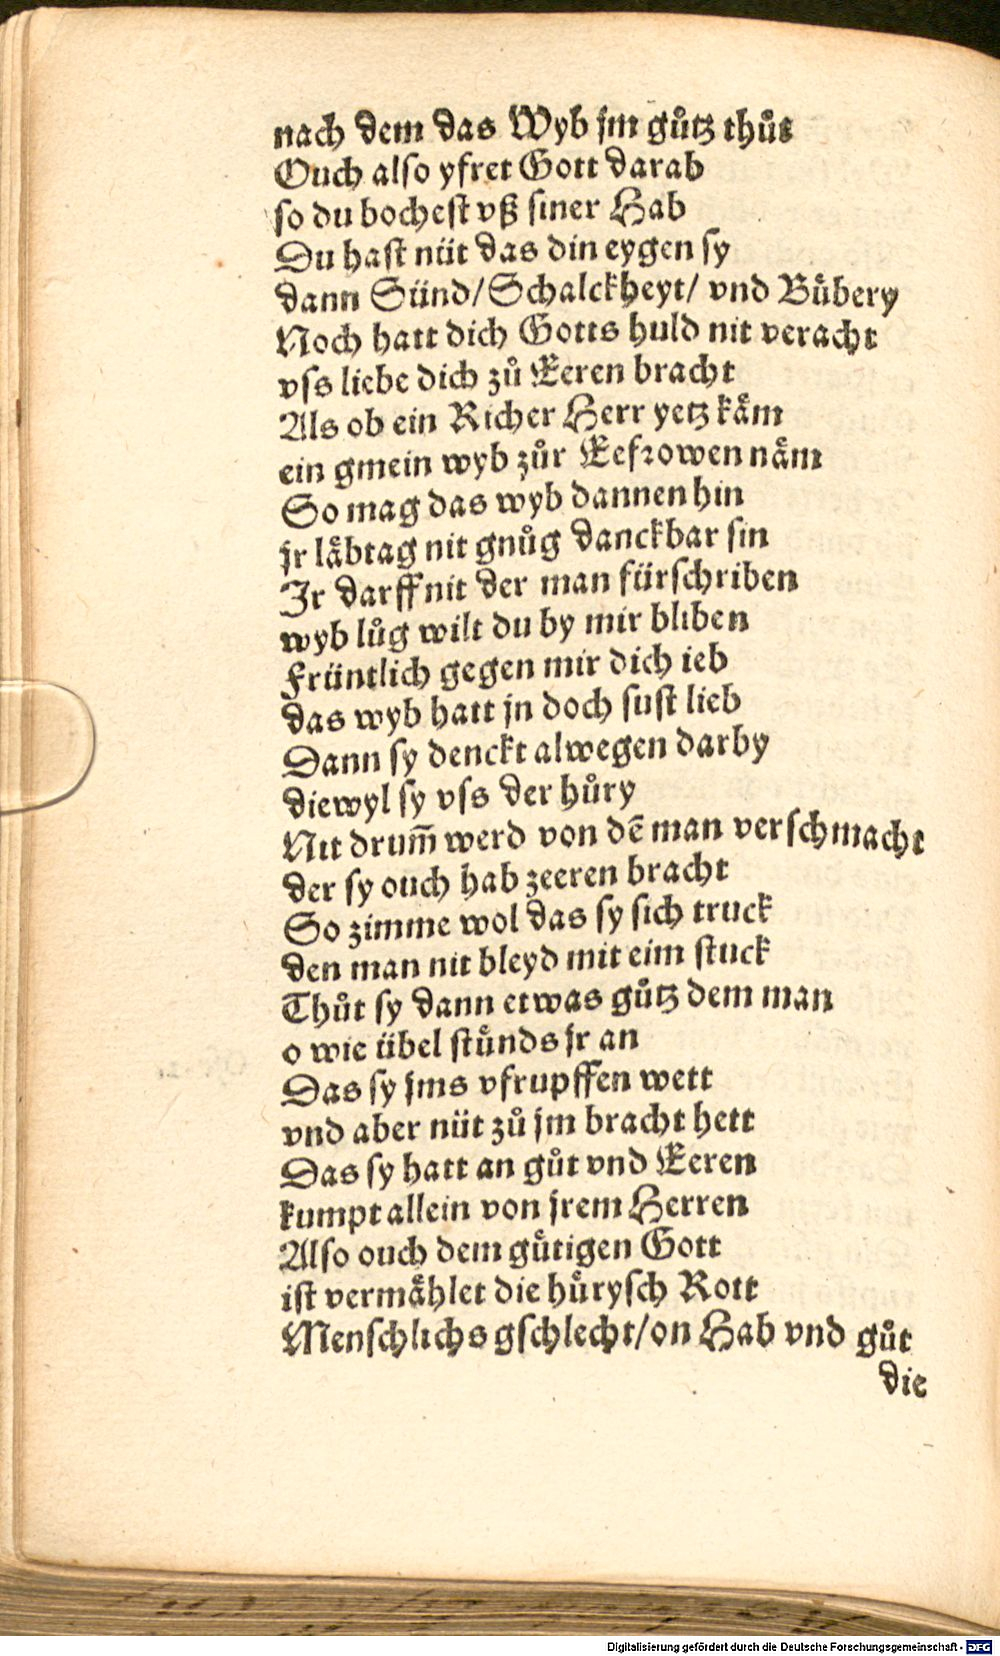 nach dem das Wyb jm gůtz thůt
Ouch also yfret Gott darab
so du bochest vß siner Hab
Du hast nüt das din eygen sy
dann Sünd/Schalckheyt/ vnd Bůbery
Noch hatt dich Gotts huld nit veracht
vss liebe dich zů Eeren bracht
Als ob ein Richer Herr yetz kåm
ein gmein wyb zůr Eefrowen nåm
So mag das wyb dannen hin
jr låbtag nit gnůg danckbar sin
Ir darff nit der man fürschriben
wyb lůg wilt du by mir bliben
Früntlich gegen mir dich ieb
das wyb hatt jn doch sust lieb
Dann sy denckt alwegen darby
diewyl sy vss der hůry
Nit drum̃ werd von dẽ man verschmacht
der sy ouch hab zeeren bracht
So zimme wol das sy sich truck
den man nit bleyd mit eim stuck
Thůt sy dann etwas gůtz dem man
o wie übel stůnds jr an
Das sy jms vfrupffen wett
vnd aber nüt zů jm bracht hett
Das sy hatt an gůt vnd Eeren
kumpt allein von jrem Herren
Also ouch dem gůtigen Gott
ist vermåhlet die hůrysch Rott
Menschlichs gschlecht/on Hab vnd gůt
die
Digitalisierung gefördert durch die Deutsche Forschungsgemeinschaft - DFG